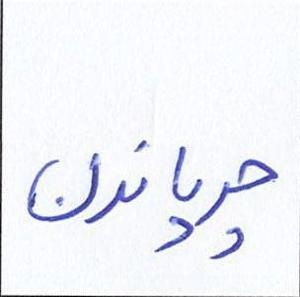 چرپاندن